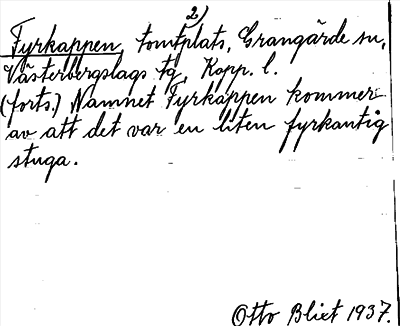 2)
Fyrkappen, tomtplats, Grangärde sn,
Västerbergslags tg, Kopp. l.
(forts.) Namnet Fyrkappen kommer
av att det var en liten fyrkantig
stuga.
Otto Blixt 1937.